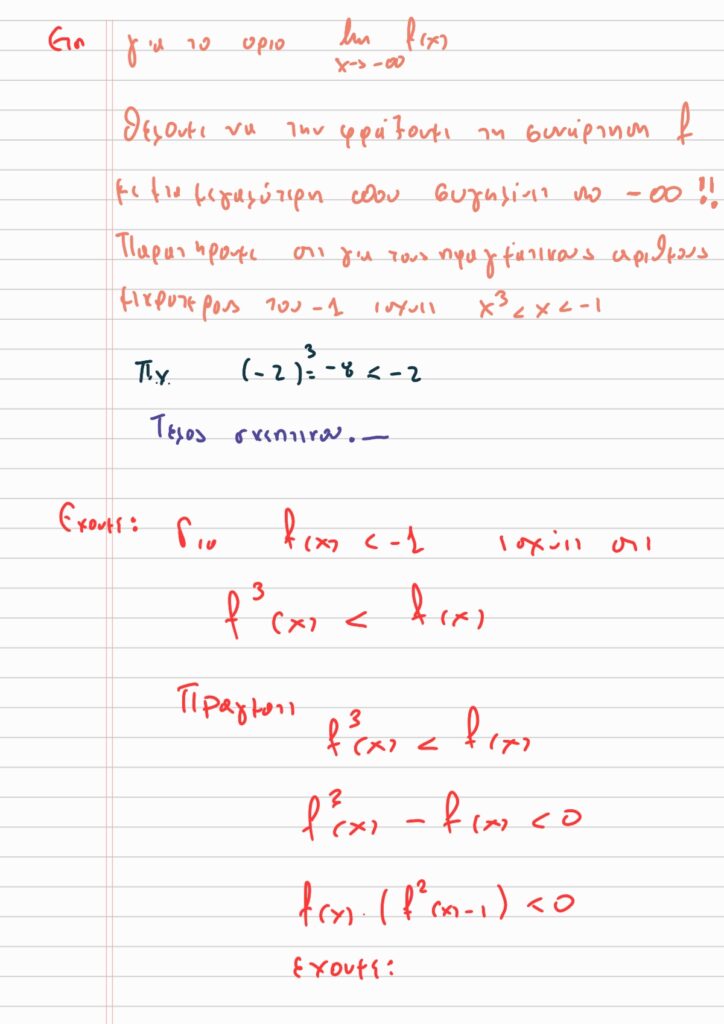 Επ για το οριο lim f(x)
x→-∞
Θελουμε να την φραξουμε τη συναρτηση f
με μια μεγαλύτερη που συγκλίνει στο -∞ !!
Παρατηρουμε οτι για τους πραγματικους αριθμους
μικροτερους του -1 ισχυει x³ < x < -1
Π.χ. (-2)³ = -8 < -2
Τελος σκεπτικου.—
Εχουμε: Για f(x) < -1 ισχύει οτι
f³(x) < f(x)
Πραγματι
f³(x) < f(x)
f³(x) - f(x) < 0
f(x) · (f²(x)-1) < 0
εχουμε: